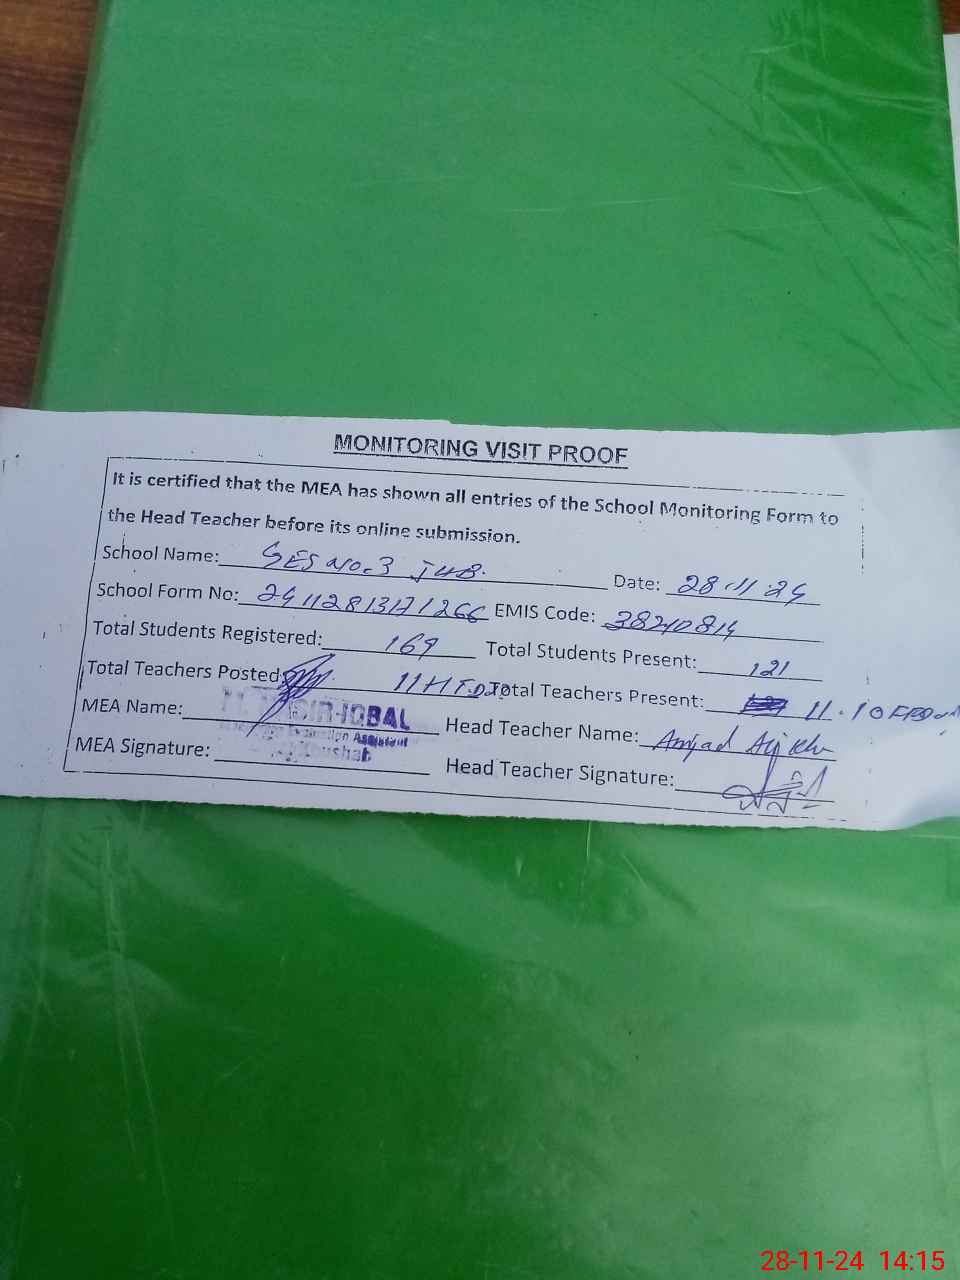 MONITORING VISIT PROOF
It is certified that the MEA has shown all entries of the School Monitoring Form to
the Head Teacher before its online submission.
School Name: GES No.3 JHB. Date: 28.11.24
School Form No: 24112813171266 EMIS Code: 38240814
Total Students Registered: 169 Total Students Present: 121
Total Teachers Posted: 11 Total Teachers Present: 11.
MEA Name: IQBAL Head Teacher Name: Amjad
Evaluation Assistant
MEA Signature: Khushab Head Teacher Signature:
28-11-24 14:15